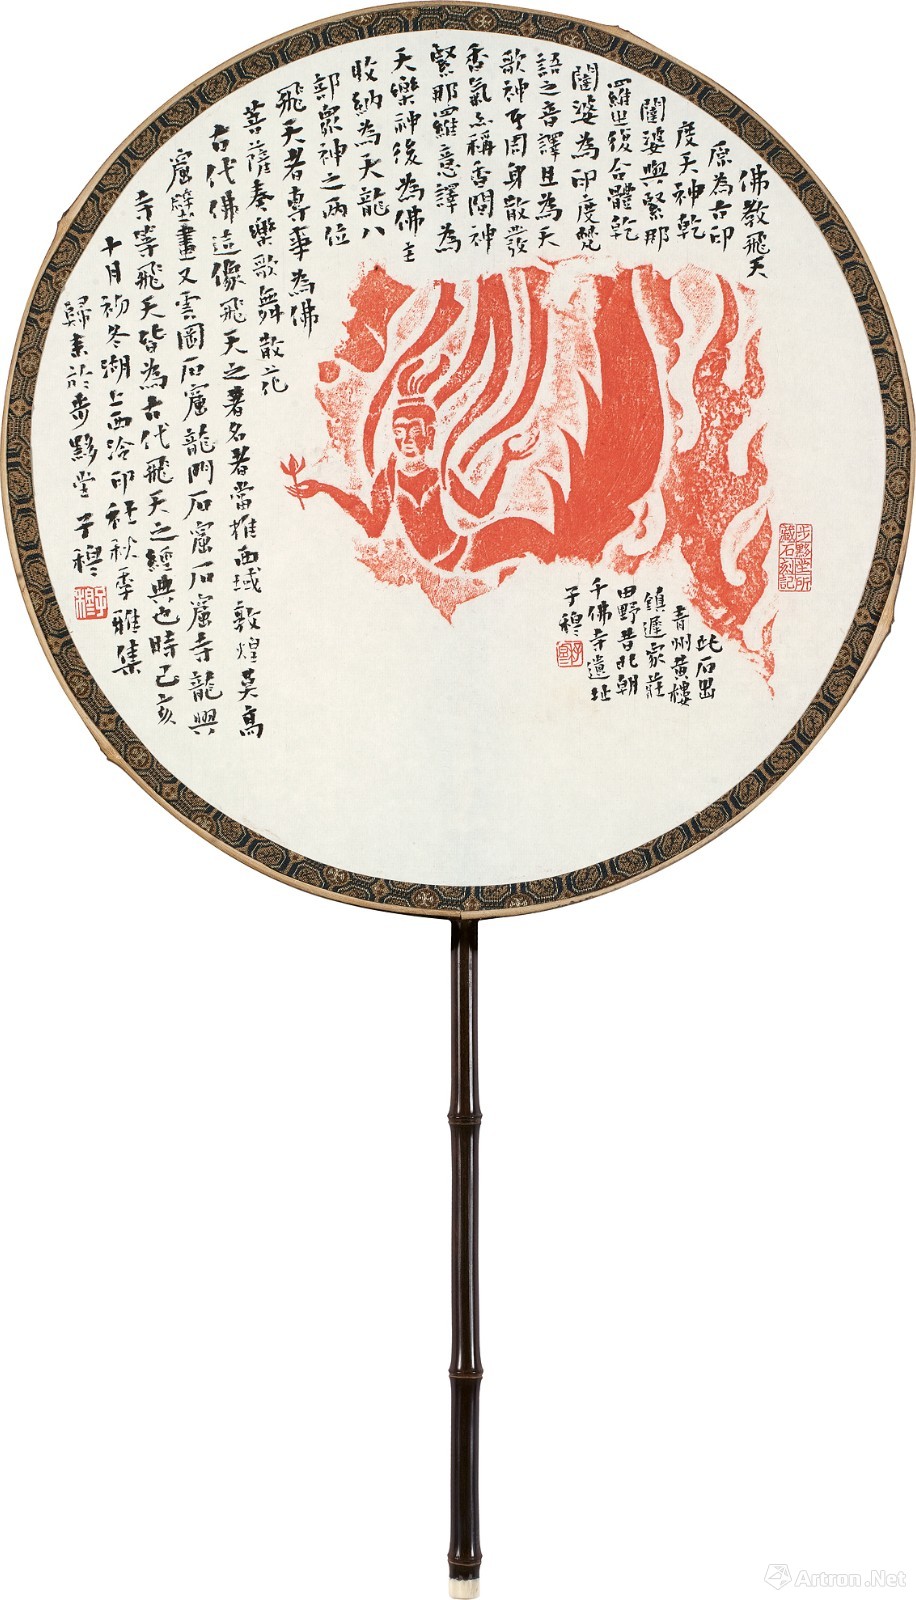 佛教飛天
原為古印
度天神乾
闥婆與緊那
羅之復合體乾
闥婆為印度梵
語之音譯且為天
歌神因周身散發
香氣亦稱香間神
緊那羅意譯為
天樂神後為佛主
收納為天龍八
部眾神之兩位
飛天者專事為佛
菩薩奏樂歌舞散花
古代佛造像飛天之著名者當推西域敦煌莫高
窟壁畫又雲岡石窟龍門石窟石窟寺龍興
寺等飛天皆為古代飛天之經典也時己亥
十月初冬湖上西泠印社秋季雅集
歸來於步黟堂子穆
子穆
此石出
青州黃樓
鎮遲家莊
田野昔北朝
千佛寺遺址
子穆
步黟堂所
藏石刻記
Artron.Net